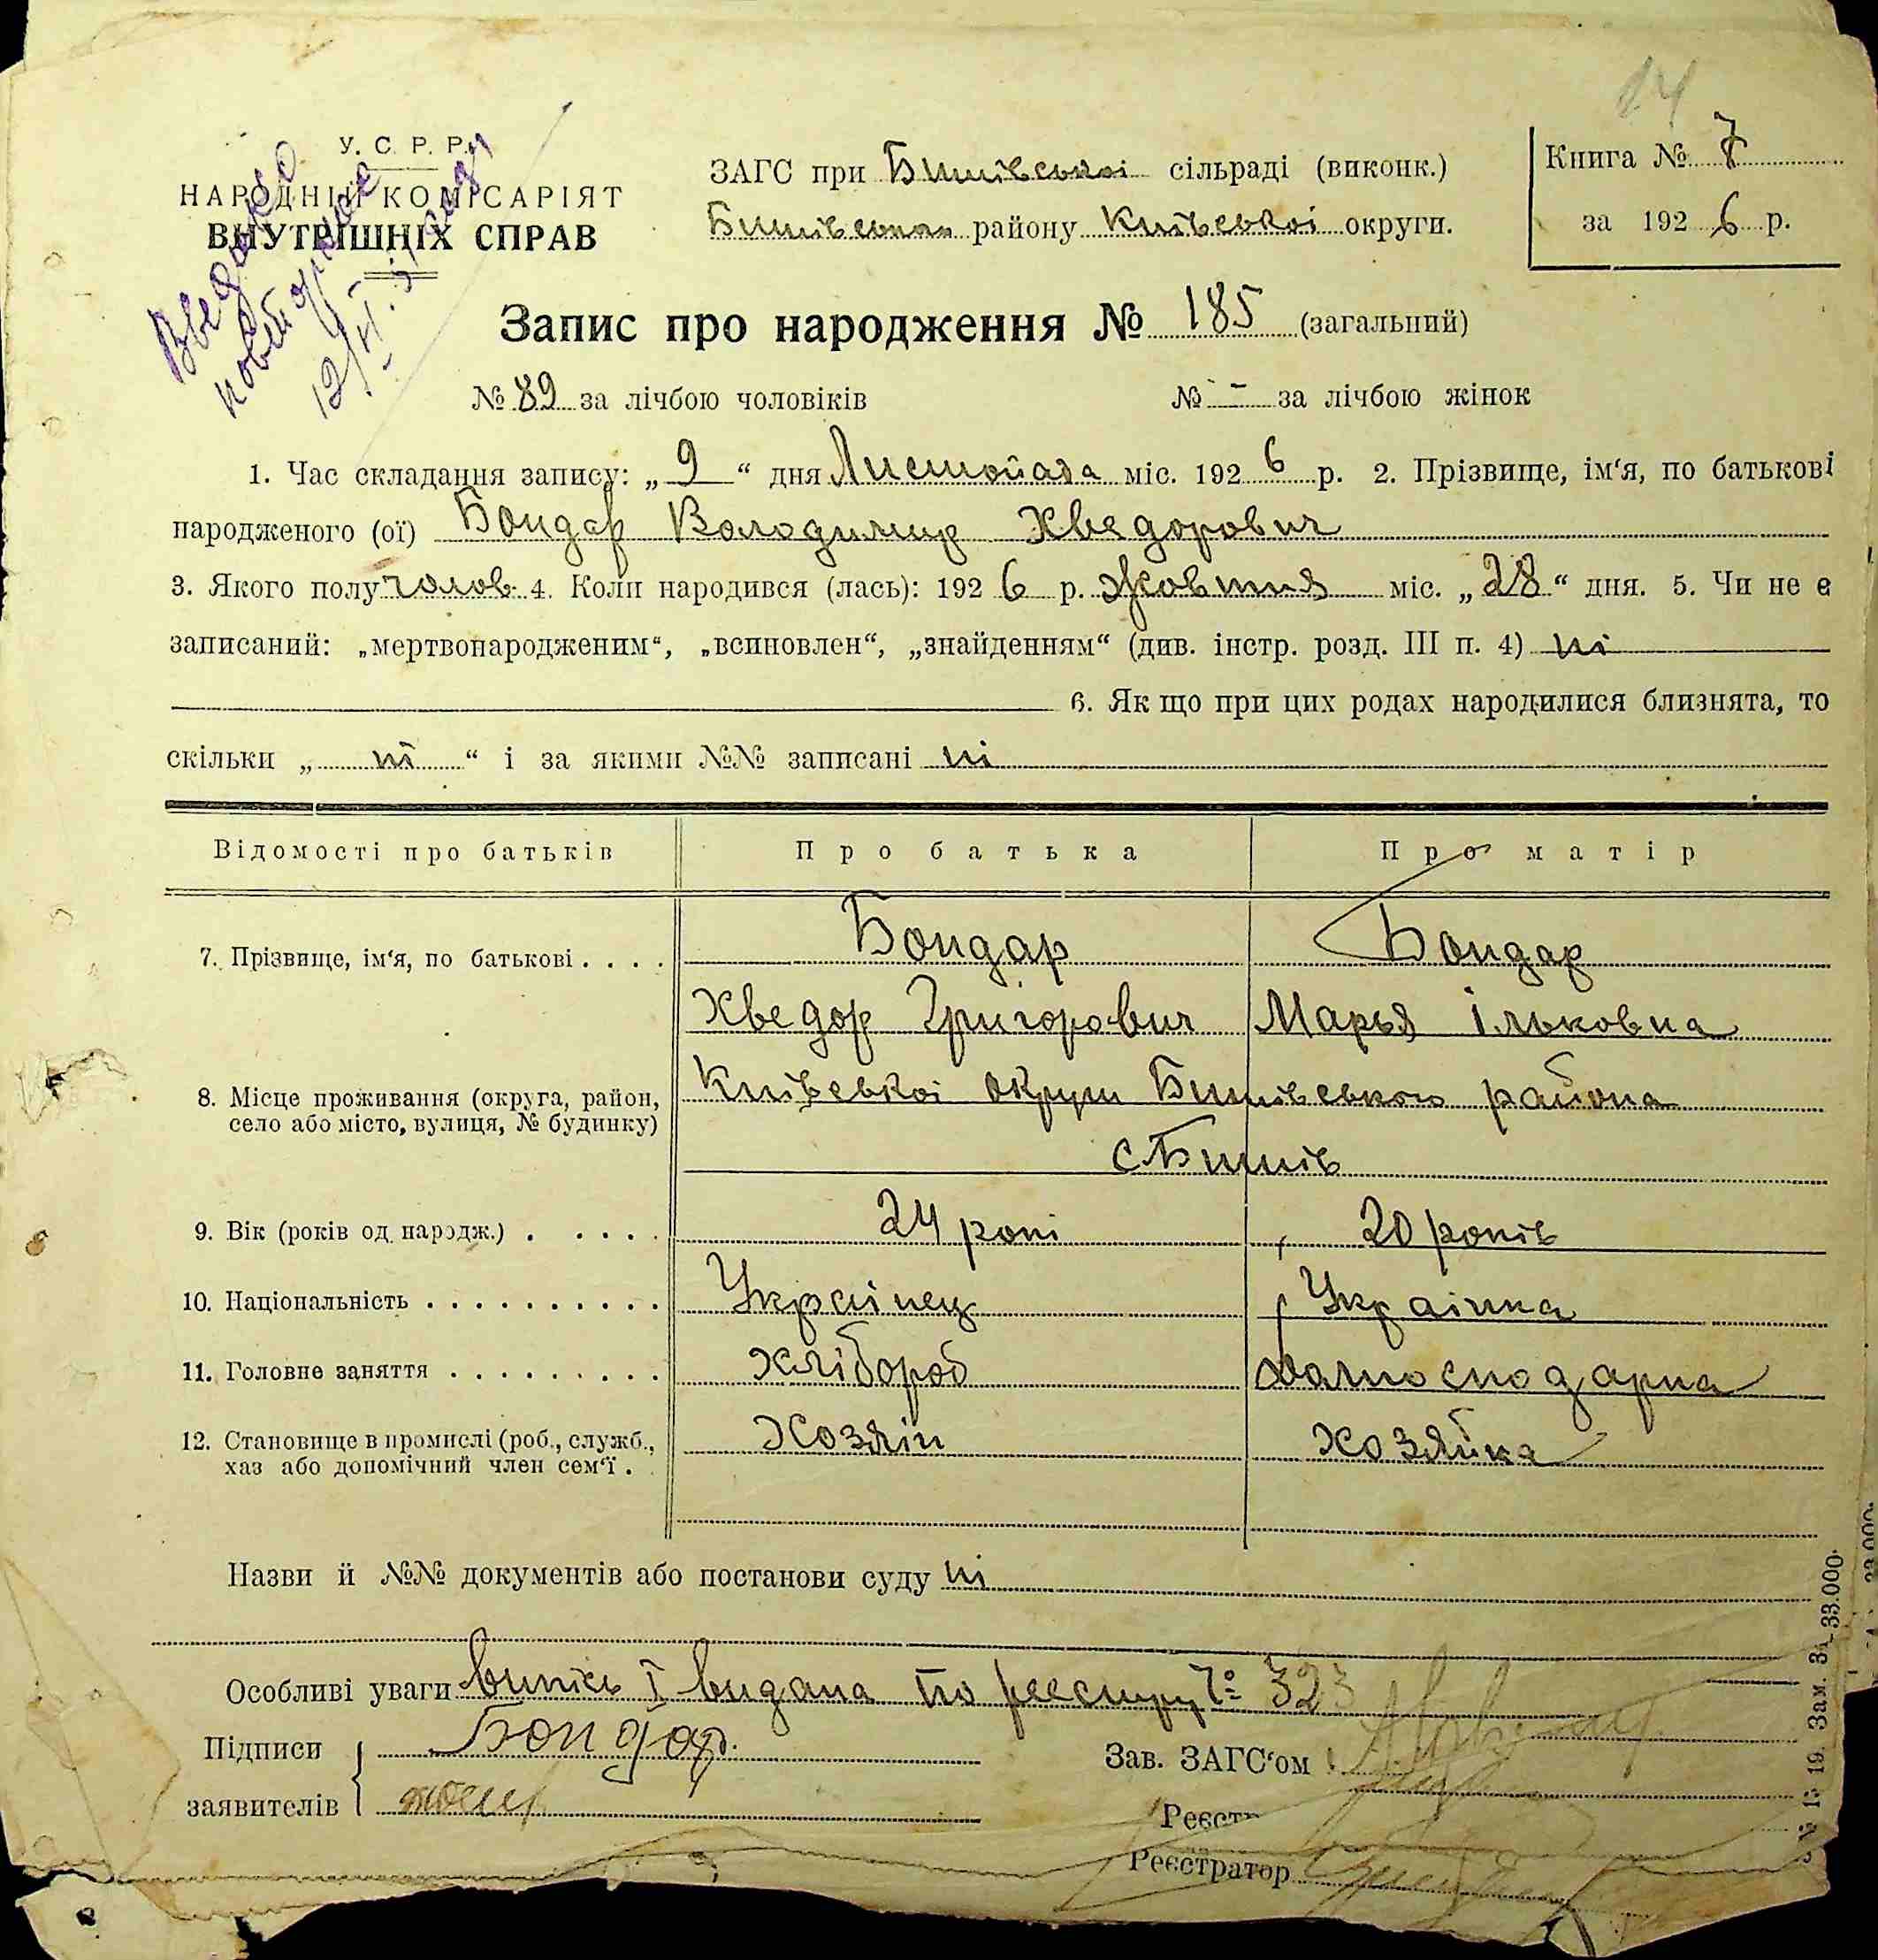 14
У. С. Р. Р.
НАРОДНІЙ КОМІСАРІЯТ
ВНУТРІШНІХ СПРАВ
ЗАГС при Бишівської сільраді (виконк.)
Бишівського району Київської округи.
Книга № 7
за 1926 р.
Запис про народження № 185 (загальний)
№ 89 за лічбою чоловіків № - за лічбою жінок
1. Час складання запису: „ 9 “ дня Листопада міс. 1926 р. 2. Прізвище, ім‘я, по батькові
народженого (ої) Бондар Володимир Хведорович
3. Якого полу чолов. 4. Коли народився (лась): 1926 р. Жовтня міс. „28“ дня. 5. Чи не є
записаний: „мертвонародженим“, „всиновлен“, „знайденням“ (див. інстр. розд. III п. 4) ні
6. Як що при цих родах народилися близнята, то
скільки „ ні “ і за якими №№ записані ні
Відомості про батьків Про батька Про матір
7. Прізвище, ім‘я, по батькові . . . . Бондар Бондар
Хведор Григорович Марья Ільковна
8. Місце проживання (округа, район, Київської округи Бишівського района
село або місто, вулиця, № будинку)
с Бишів
9. Вік (років од народж.) . . . . . 24 роки 20 років
10. Національність . . . . . . . . . . . Украінец Украінка
11. Головне заняття . . . . . . . . . Хлібороб домогосподарка
12. Становище в промислі (роб., служб., Хозяін хозяйка
хаз або допомічний член сем‘ї . .
Назви й №№ документів або постанови суду ні
Особливі уваги випись I видана по реестру № 323
Підписи Бондар.
Зав. ЗАГС‘ом
заявителів
Реєстр
Реєстратор
Зам. 33.000.